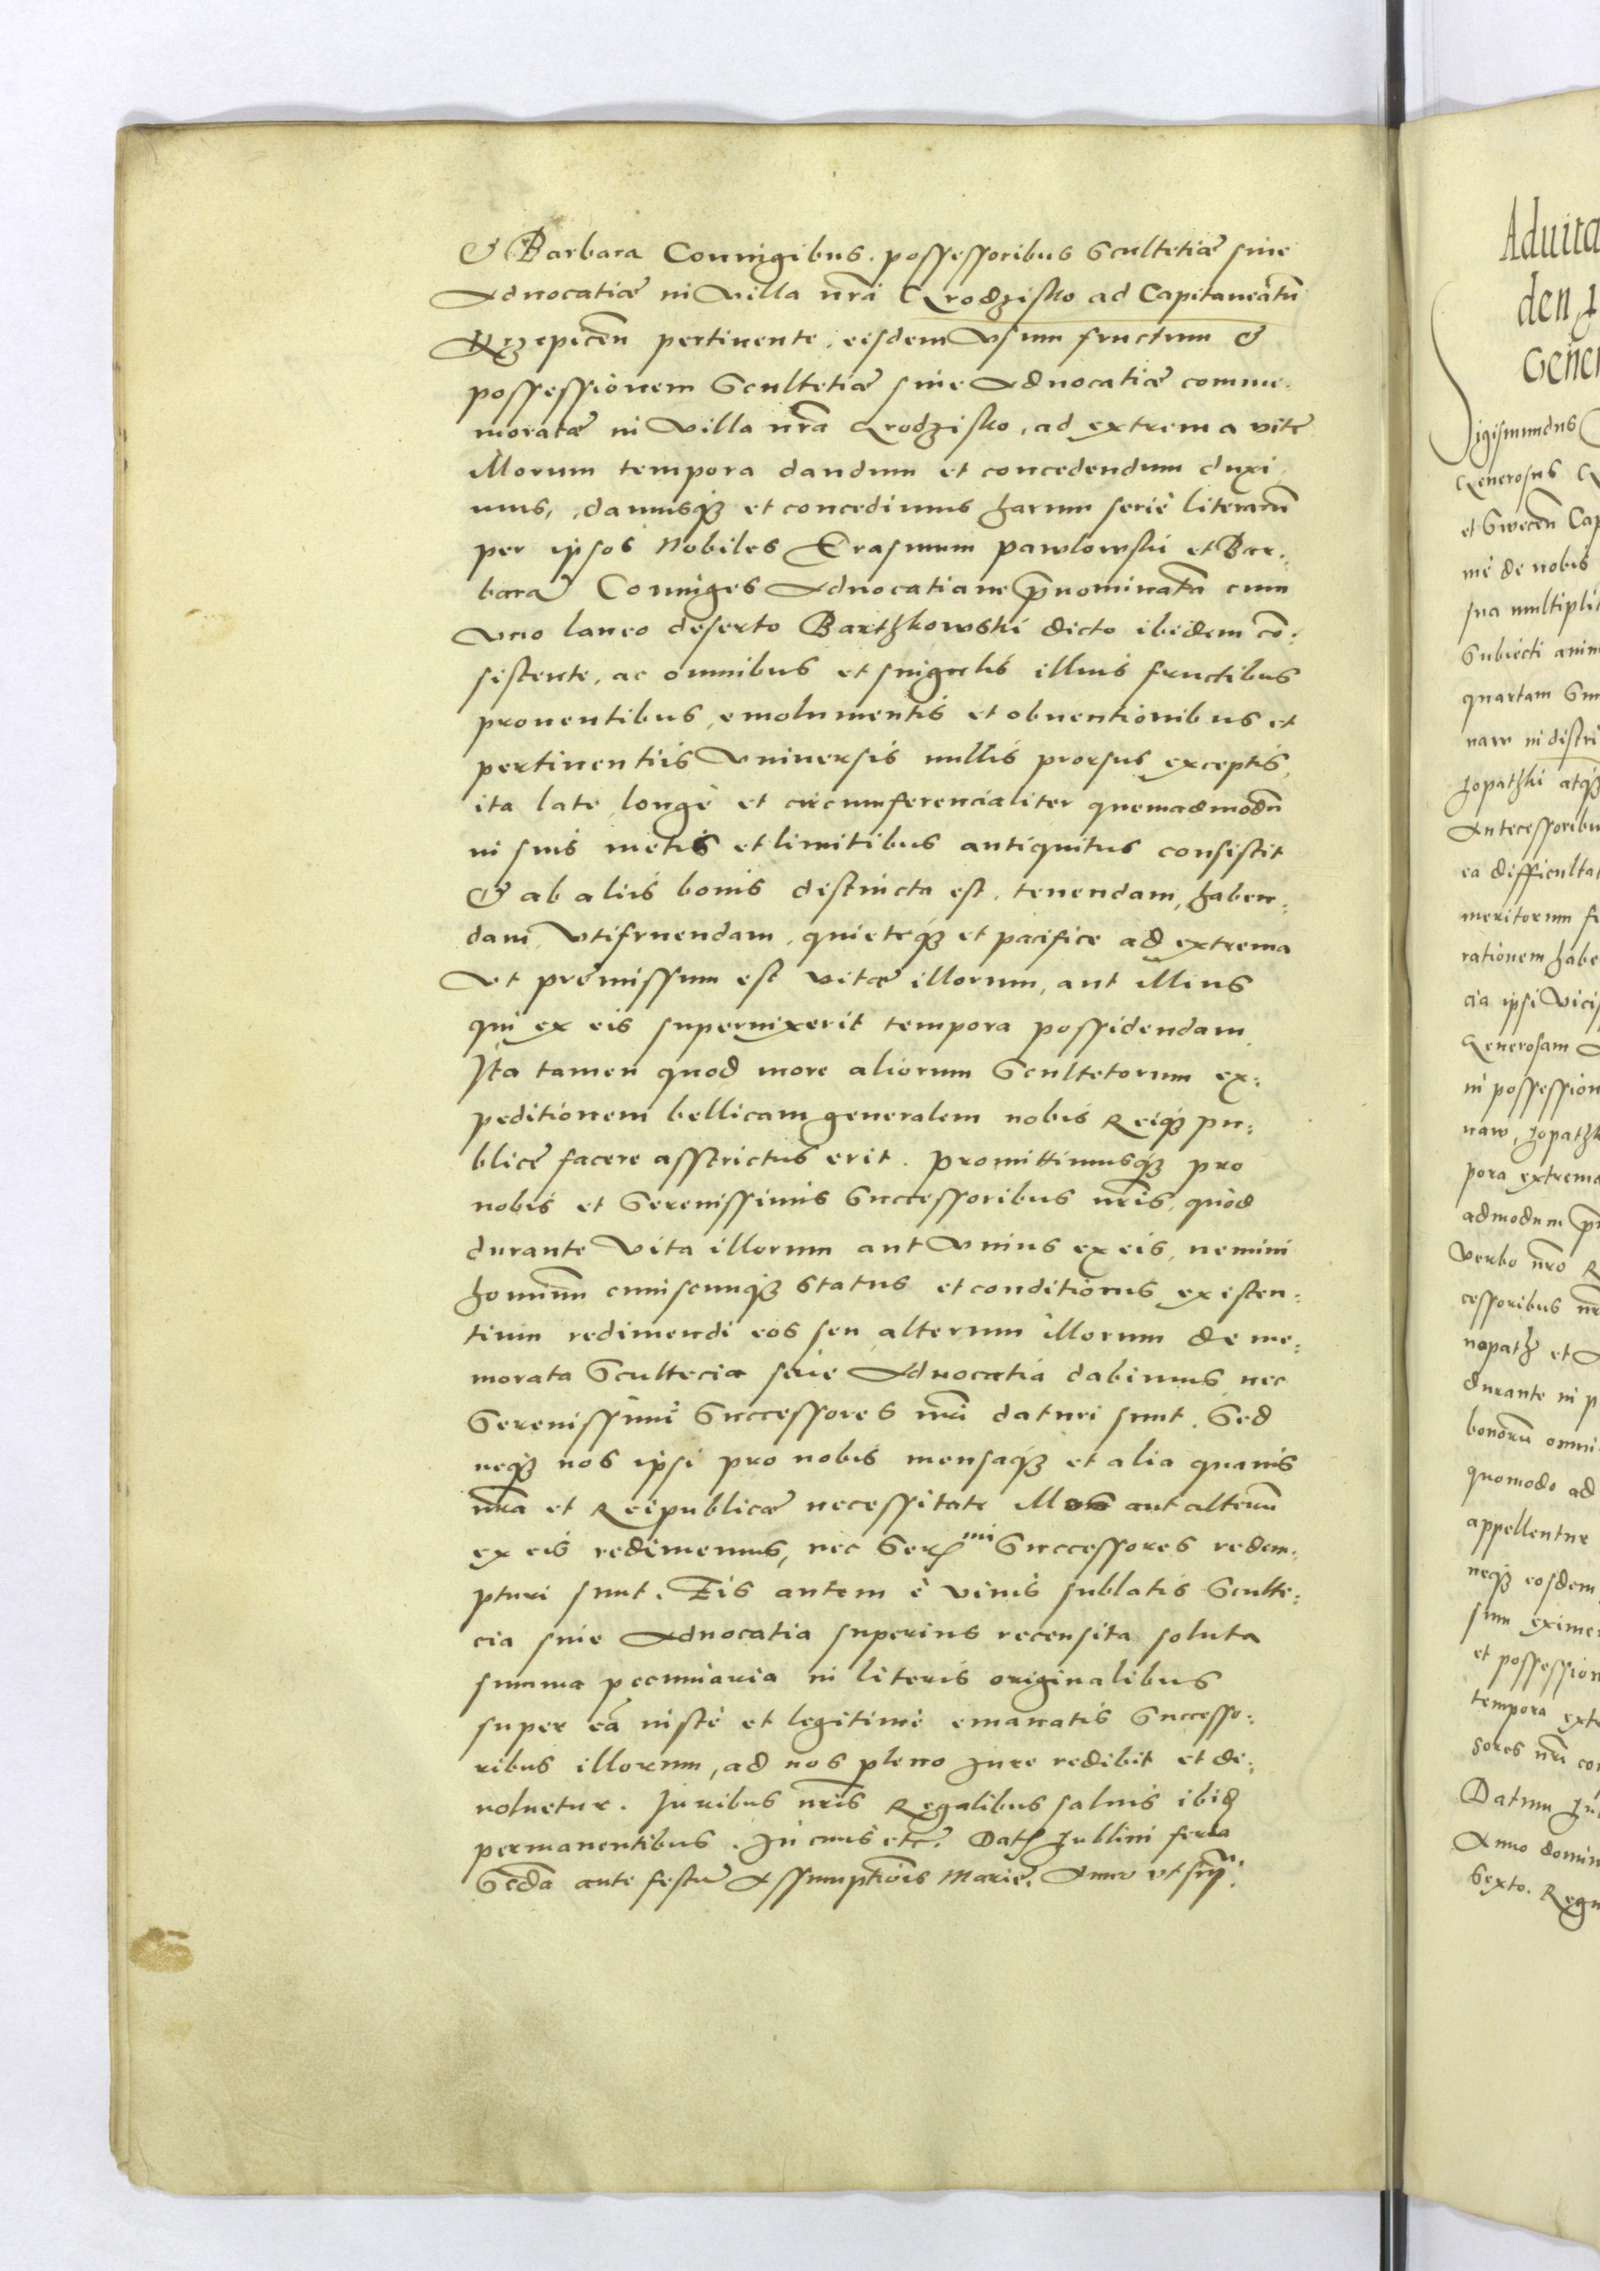 & Barbara Coniugibus. possessoribus Scultetiæ siue
Aduocatiæ in Villa nrã Grodzisko ad Capitaneatũ
Krzepiceñ pertinente. eisdem Vsum fructum &
possessionem Scultetiæ siue Aduocatiæ comme-
moratæ in Villa nrã Grodzisko, ad extrema vite
illorum tempora dandum et concedendum duxi
mus, damusq3 et concedimus harum serie literarũ
per ipsos Nobiles Erasmum pawlowski et Bar-
barã Coniuges Aduocatiam p̃nominatã cum
Vno laneo deserto Barthkowski dicto ibidem cõ-
sistente, ac omnibus et singulis illius fructibus
prouentibus, emolumentis et obuentionibus et
pertinentiis Vniuersis nullis prorsus exceptis,
ita late longè et circumferencialiter quemadmodũ
in suis metis et limitibus antiquitus consistit
& ab aliis bonis distincta est. tenendam, haben-
dam, Vtifruendam, quieteq3 et pacifice ad extrema
Vt premissum est vitæ illorum, aut illius
qui ex eis superuixerit tempora possidendam.
Ita tamen quod more aliorum Scultetorum ex-
peditionem bellicam generalem nobis Reiq3 pu-
blice facere asstrictus erit. Promittimusq3 pro
nobis et Serenissimis Successoribus nris, quòd
durante Vita illorum aut Vnius ex eis, nemini
hominum cuiscunq3 status et conditionis existen-
tium redimendi eos seu alterum illorum de me-
morata Scultecia siue Aduocatia dabimus, nec
Serenissimi Successores nri daturi sunt. Sed
neq3 nos ipsi pro nobis mensaq3 et alia quauis
nrã et Reipublicæ necessitate illos aut alterũ
ex eis redimemus, nec Ser mi Successores redem-
pturi sunt. Eis autem è viuis sublatis Sculte-
cia siue Aduocatia superius recensita soluta
summa pecuniaria in literis originalibus
super eã iustè et legitimè emanatis Successo-
ribus illorum, ad nos pleno Jure redibit et de-
uoluetur. Juribus nris Regalibus saluis ibid
permanentibus. In cuius etc. Dat Lublini feria
Scda ante festũ Assumptiõis Marie. Anno vt sup̃.
Aduita
den
Gener
Sigismundus
Generosus
et Sweceñ Cap
me de nobis
sua multipli
Subiecti anim
quartam Sm
naw in distri
Zopathki atq3
Antecessoribu
ea difficultat
meritorum
rationem habe
cia ipsi Vicis
Generosam
in possession
naw, Zopathk
pora extrema
admodum
Verbo nro R
cessoribus nr
nopath et
durante in p
bonorũ omni
quomodo ad
appellentur
neq3 eosdem
sum eximer
et possession
tempora extr
sores nri
Datum
Anno domin
Sexto. Regn